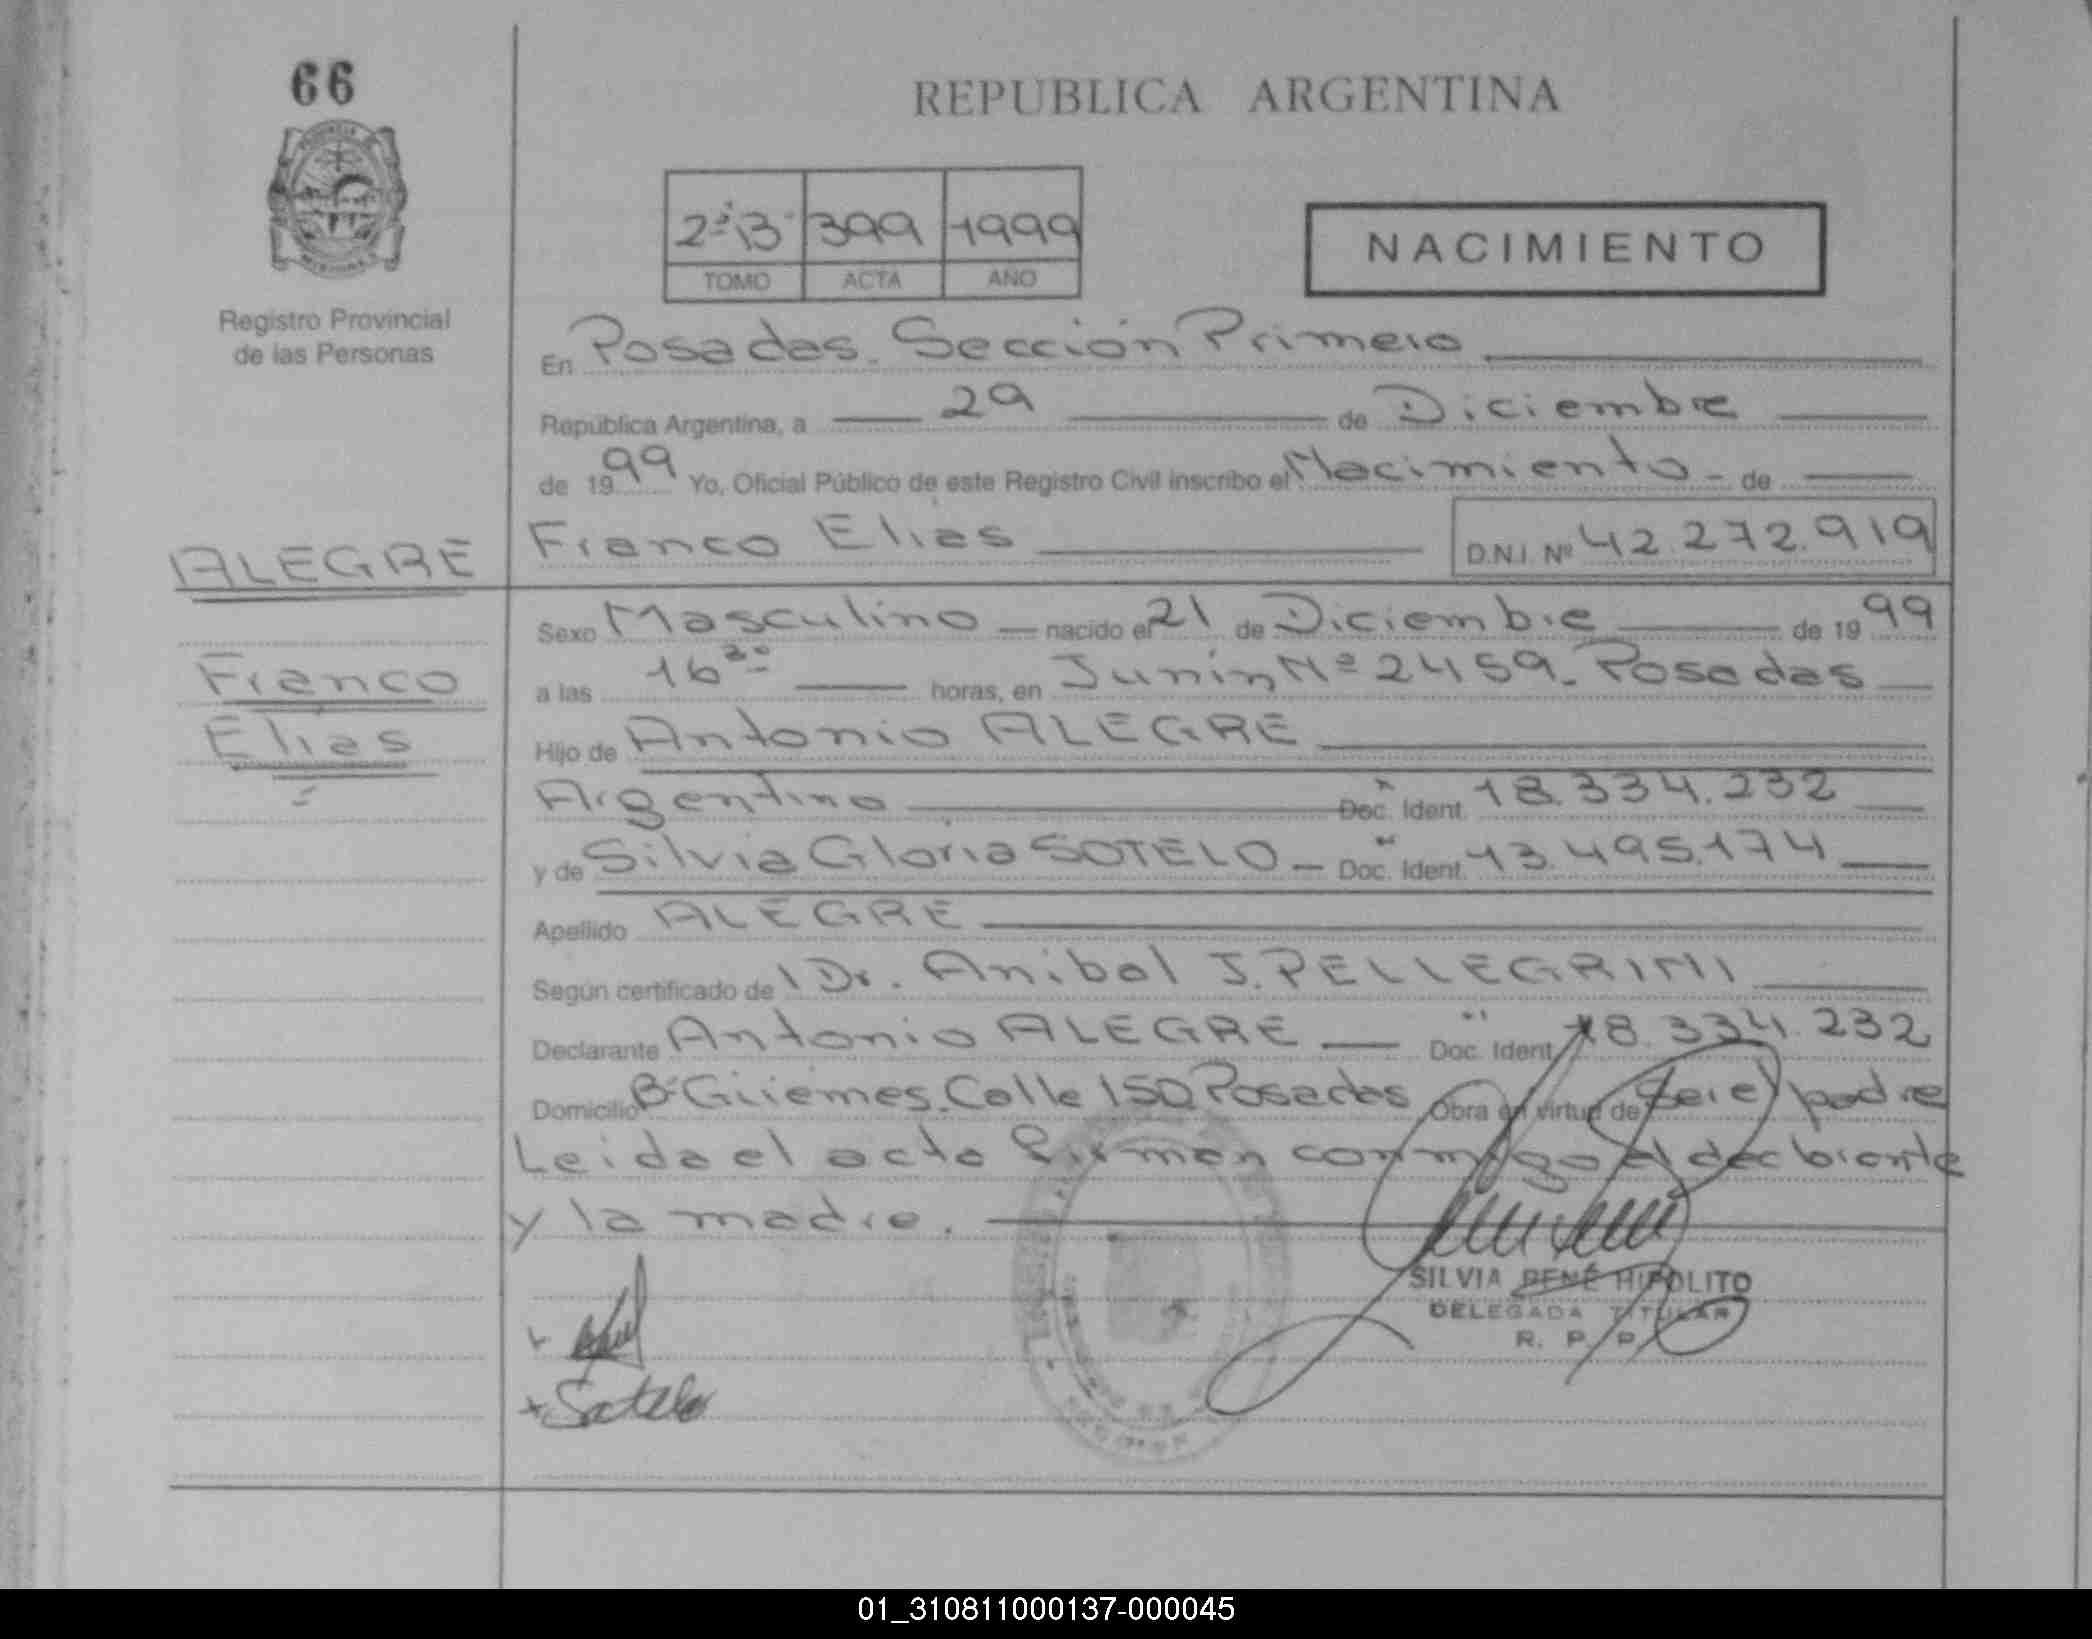 66
REPUBLICA ARGENTINA
2º"B" 399 1999
TOMO ACTA AÑO
NACIMIENTO
Registro Provincial
de las Personas
En Posadas. Sección Primera
República Argentina, a 29 de Diciembre
de 1999 Yo, Oficial Público de este Registro Civil inscribo el Nacimiento - de
ALEGRE
Franco Elias D.N.I. Nº 42.272.919
Sexo Masculino nacido el 21 de Diciembre de 1999
Franco
a las 16 30 horas, en Junín Nº 2459. Posadas
Elias
Hijo de Antonio ALEGRE
Argentino Doc. Ident. 18.334.232
y de Silvia Gloria SOTELO - Doc. Ident. 13.495.174
Apellido ALEGRE
Según certificado de l Dr. Anibal J. PELLEGRINI
Declarante Antonio ALEGRE Doc. Ident. 18.334.232
Domicilio Bº Güemes. Calle 150 Posadas Obra en virtud de Ser el padre
Leida el acta firman conmigo el declarante
y la madre.
SILVIA RENÉ HIPOLITO
DELEGADA TITULAR
R. P. P.
Sotelo
01_310811000137-000045